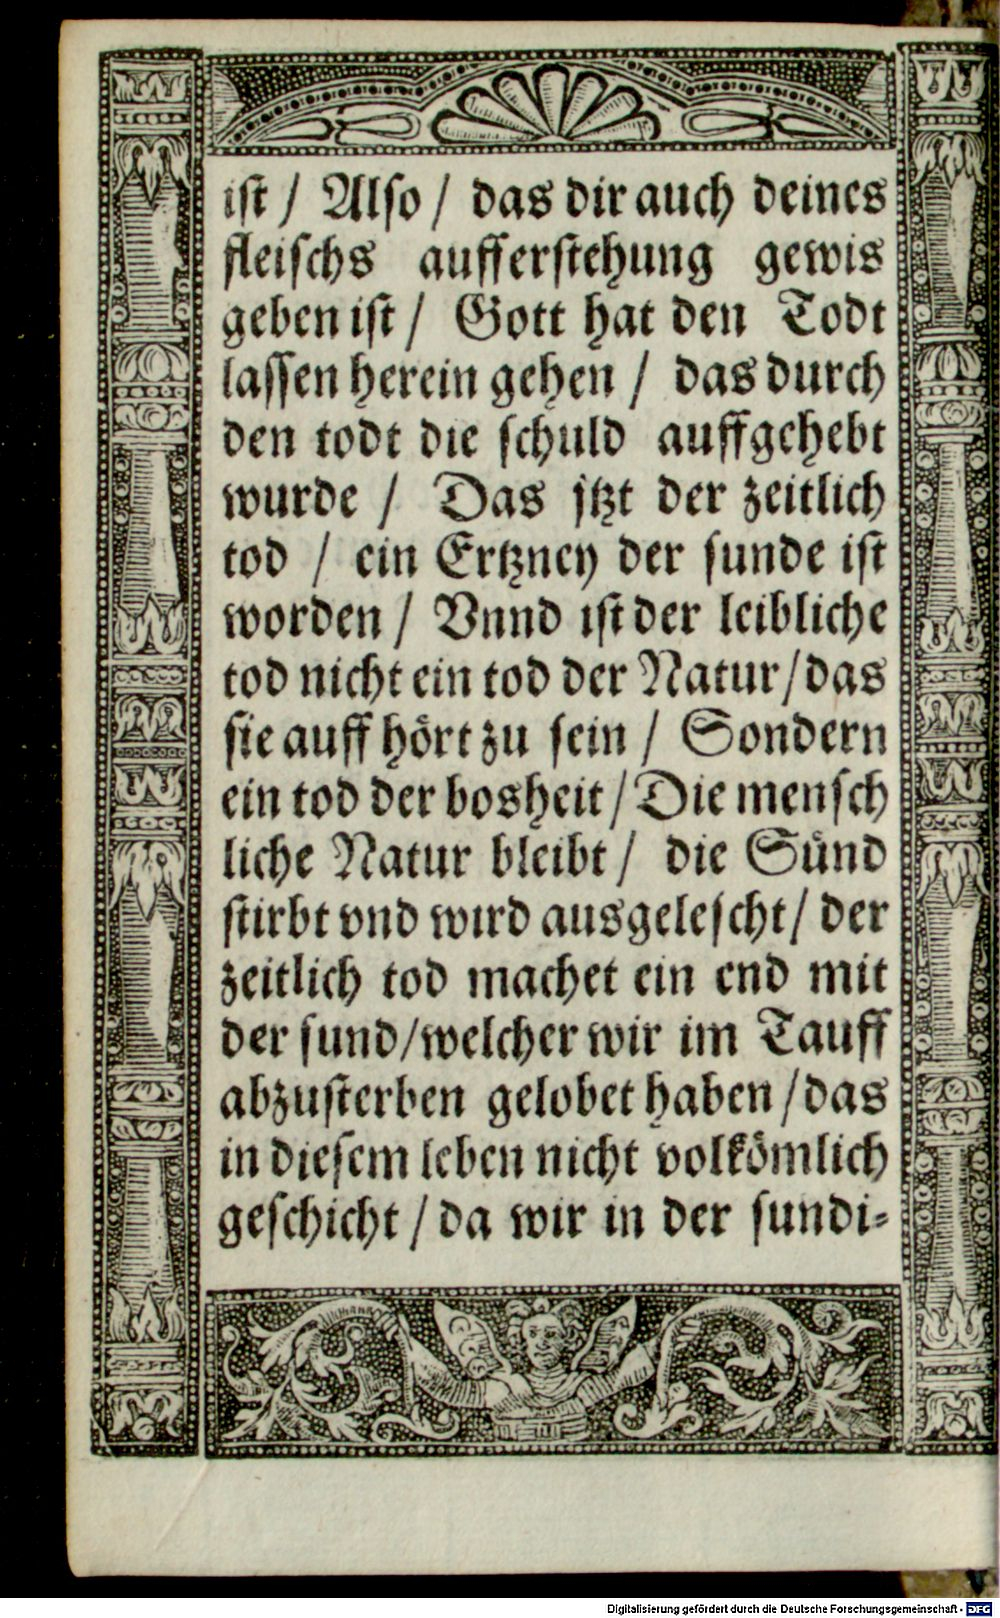 ist / Also / das dir auch deines
fleischs aufferstehung gewis
geben ist / Gott hat den Todt
lassen herein gehen / das durch
den todt die schuld auffgehebt
wurde / Das jtzt der zeitlich
tod / ein Ertzney der sunde ist
worden / Vnnd ist der leibliche
tod nicht ein tod der Natur / das
sie auff hört zu sein / Sondern
ein tod der bosheit / Die mensch
liche Natur bleibt / die Sünd
stirbt vnd wird ausgelescht / der
zeitlich tod machet ein end mit
der sund / welcher wir im Tauff
abzusterben gelobet haben / das
in diesem leben nicht volkömlich
geschicht / da wir in der sundi⸗
Digitalisierung gefördert durch die Deutsche Forschungsgemeinschaft - DFG